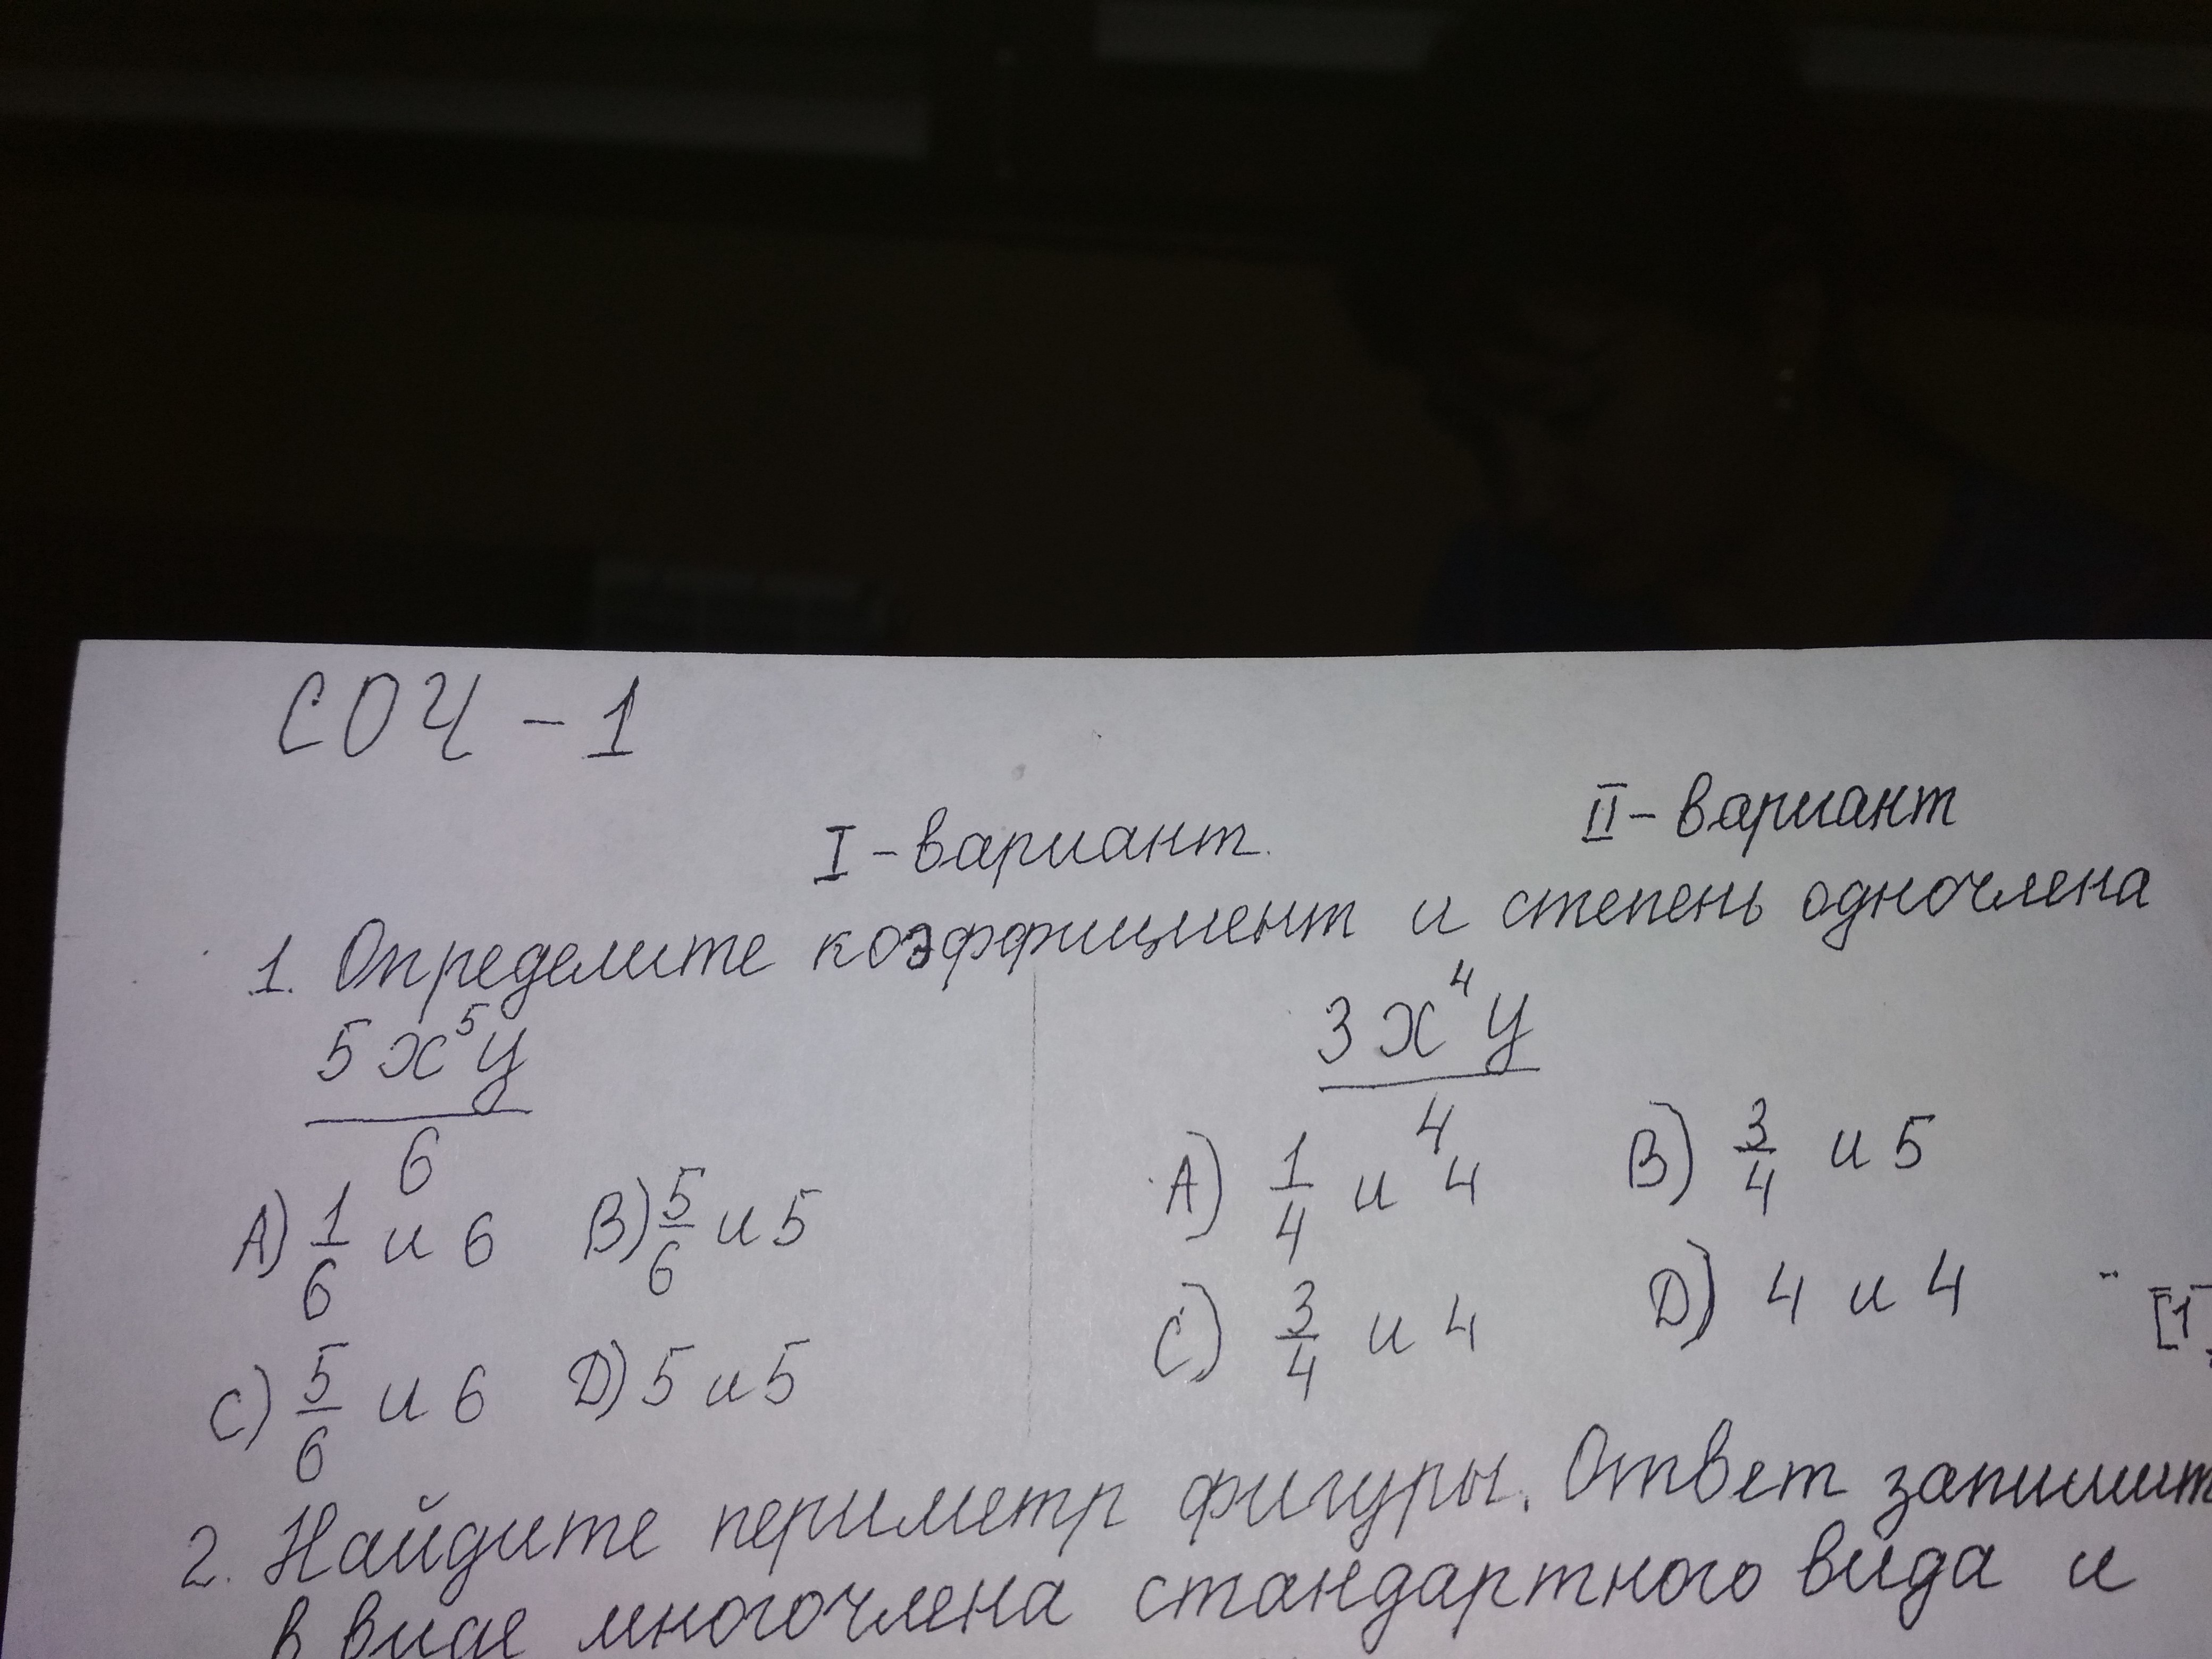 СОЧ - 1
I - вариант. II - вариант
1. Определите коэффициент и степень одночлена
5x⁵y/6 3x⁴y/4
A) 1/6 и 6 B) 5/6 и 5 A) 1/4 и 4 B) 3/4 и 5
C) 5/6 и 6 D) 5 и 5 C) 3/4 и 4 D) 4 и 4 [1]
2. Найдите периметр фигуры. Ответ запишит
в виде многочлена стандартного вида и